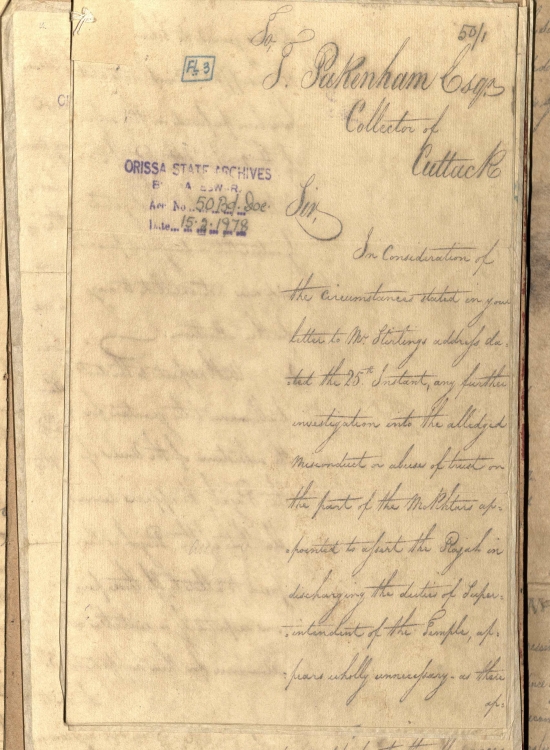 50/1
To,
T. Pakenham Esqr.
Fl. 3
Collector of
Cuttack
ORISSA STATE ARCHIVES
Acc No... 50 Bd. Doc.
Date... 15.2.1978
Sir,
In Consideration of
the circumstances stated in your
letter to Mr. Stirlings address da-
-ted the 25th Instant, any further
investigation into the alledged
misconduct or abuses of trust on
the part of the Mokhtars ap-
-pointed to assist the Rajah in
discharging the duties of Super-
-intendent of the Temple, ap-
-pears wholly unnecessary - as there
ap-